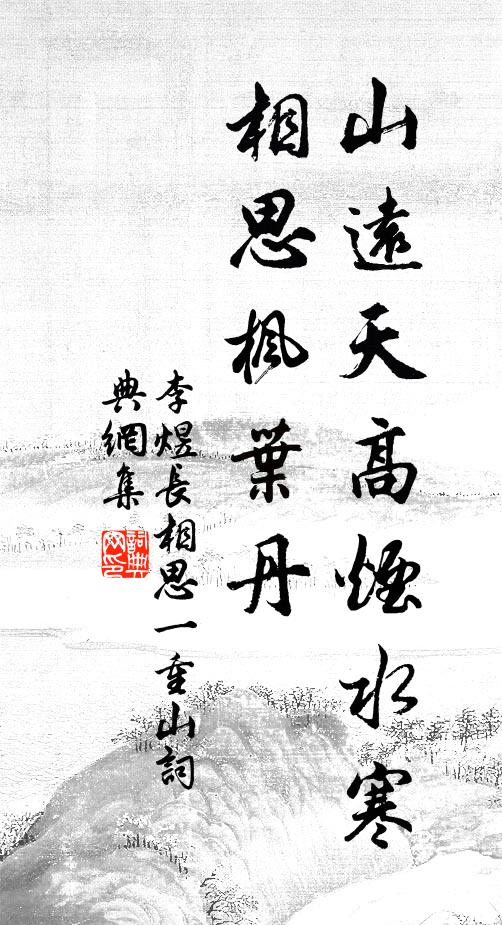 山遠天高煙水寒
相思楓葉丹
李煜長相思一重山詞
典網集
詞典網印